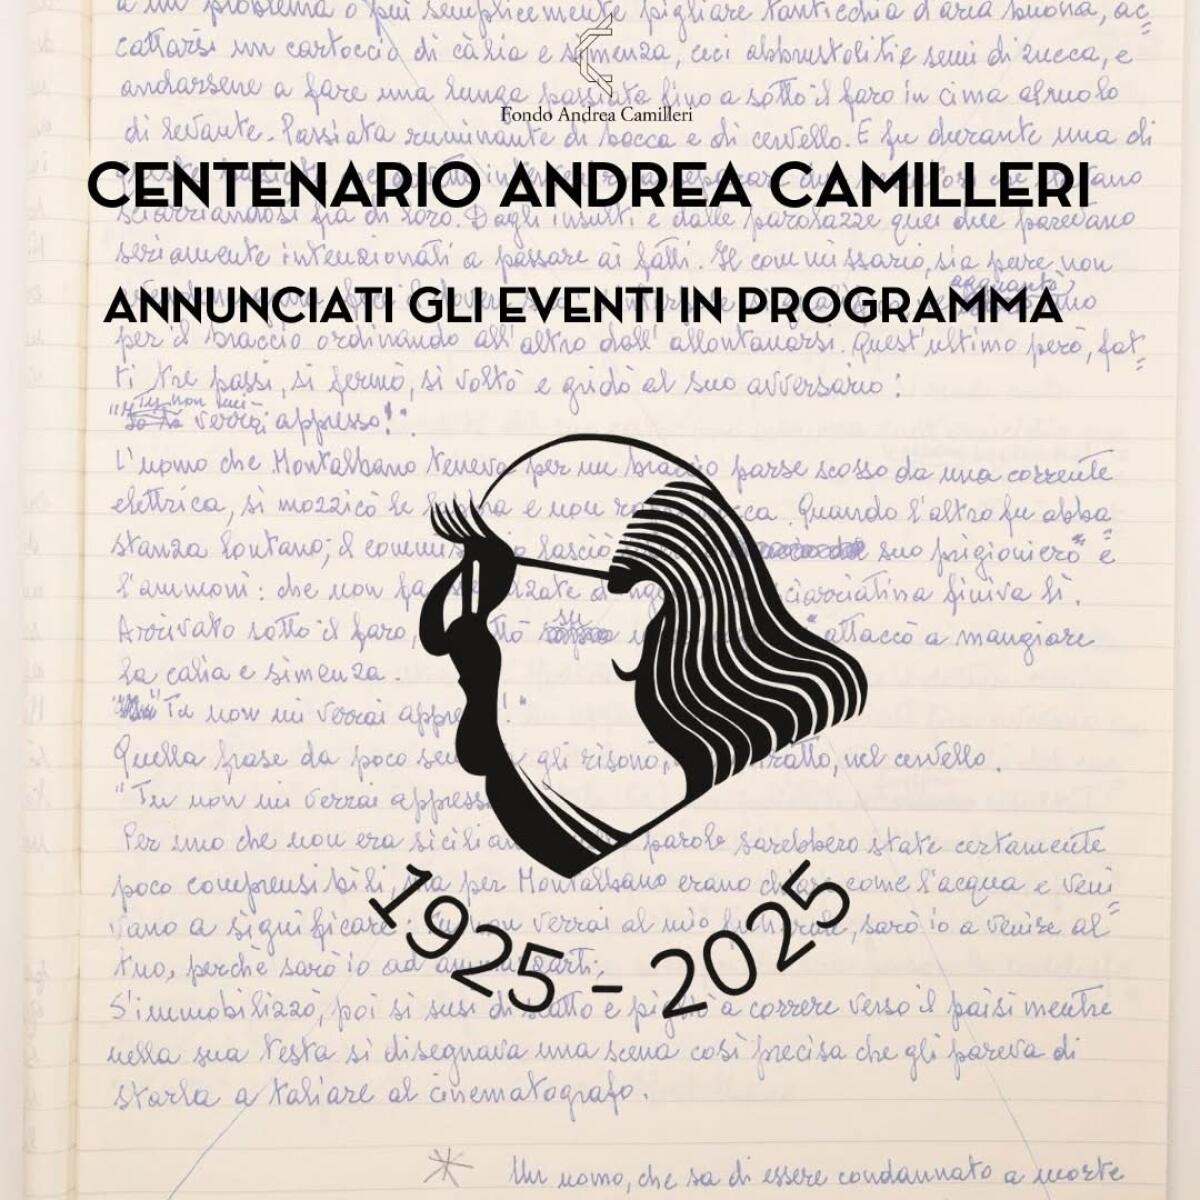 a un problema o più semplicemente pigliare tanticchia d'aria buona, ac=
cattarsi un cartoccio di càlia e simenza, ceci abbrustoliti e semi di zucca, e
Fondo Andrea Camilleri
andarsene a fare una lunga passiata fino a sotto il faro in cima al molo
di levante. Passiata ruminante di bocca e di cervello. E fu durante una di
CENTENARIO ANDREA CAMILLERI
sciarriandosi fra di loro. Dagli insulti e dalle parolazze quei due parevano
seriamente intenzionati a passare ai fatti. Il commissario, sia pure non
ANNUNCIATI GLI EVENTI IN PROGRAMMA
per il braccio ordinando all'altro dall'allontanarsi. Quest'ultimo però, fat=
ti tre passi, si fermò, si voltò e gridò al suo avversario:
"Tu non mi verrai appresso!".
L'uomo che Montalbano teneva per un braccio parse scosso da una corrente
elettrica, si mozzicò le e non Quando l'altro fu abba
stanza lontano, il lasciò suo prigioniero e
l'ammonì: che non finiva lì.
Arrivato sotto il faro, su attaccò a mangiare
la calia e simenza.
"Tu non mi verrai appresso!"
Quella frase da poco gli risonò, nel cervello.
"Tu non mi verrai appresso
Per uno che non era siciliano parole sarebbero state certamente
poco comprensibili, ma per Montalbano erano chiare come l'acqua e veni
vano a significare: tu non verrai al mio funerale, sarò io a venire al
tuo, perchè sarò io ad ammazzarti.
S'immobilizzò, poi si susì di scatto e pigliò a correre verso il paisi mentre
nella sua testa si disegnava una scena così precisa che gli pareva di
starla a taliare al cinematografo.
1925 - 2025
Un uomo, che sa di essere condannato a morte